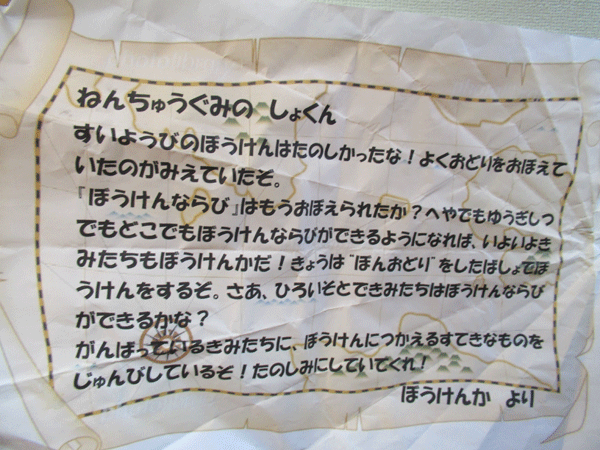 ねんちゅうぐみの しょくん
すいようびのぼうけんはたのしかったな！よくおどりをおぼえて
いたのがみえていたぞ。
『ぼうけんならび』はもうおぼえられたか？へやでもゆうぎしつ
でもどこでもぼうけんならびができるようになれば、いよいよき
みたちもぼうけんかだ！きょうは“ぼんおどり”をしたばしょでぼ
うけんをするぞ。さあ、ひろいそとできみたちはぼうけんならび
ができるかな？
がんばっているきみたちに、ぼうけんにつかえるすてきなものを
じゅんびしているぞ！たのしみにしていてくれ！
ぼうけんか より